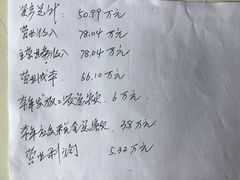 资产总计: 50.99 万元
营业收入 78.04 万元
主营业务收入 78.04 万元
营业成本 66.10 万元
本年发放工资总额 6 万元
本年应交税金总额 3.8 万元
营业利润 5.32 万元